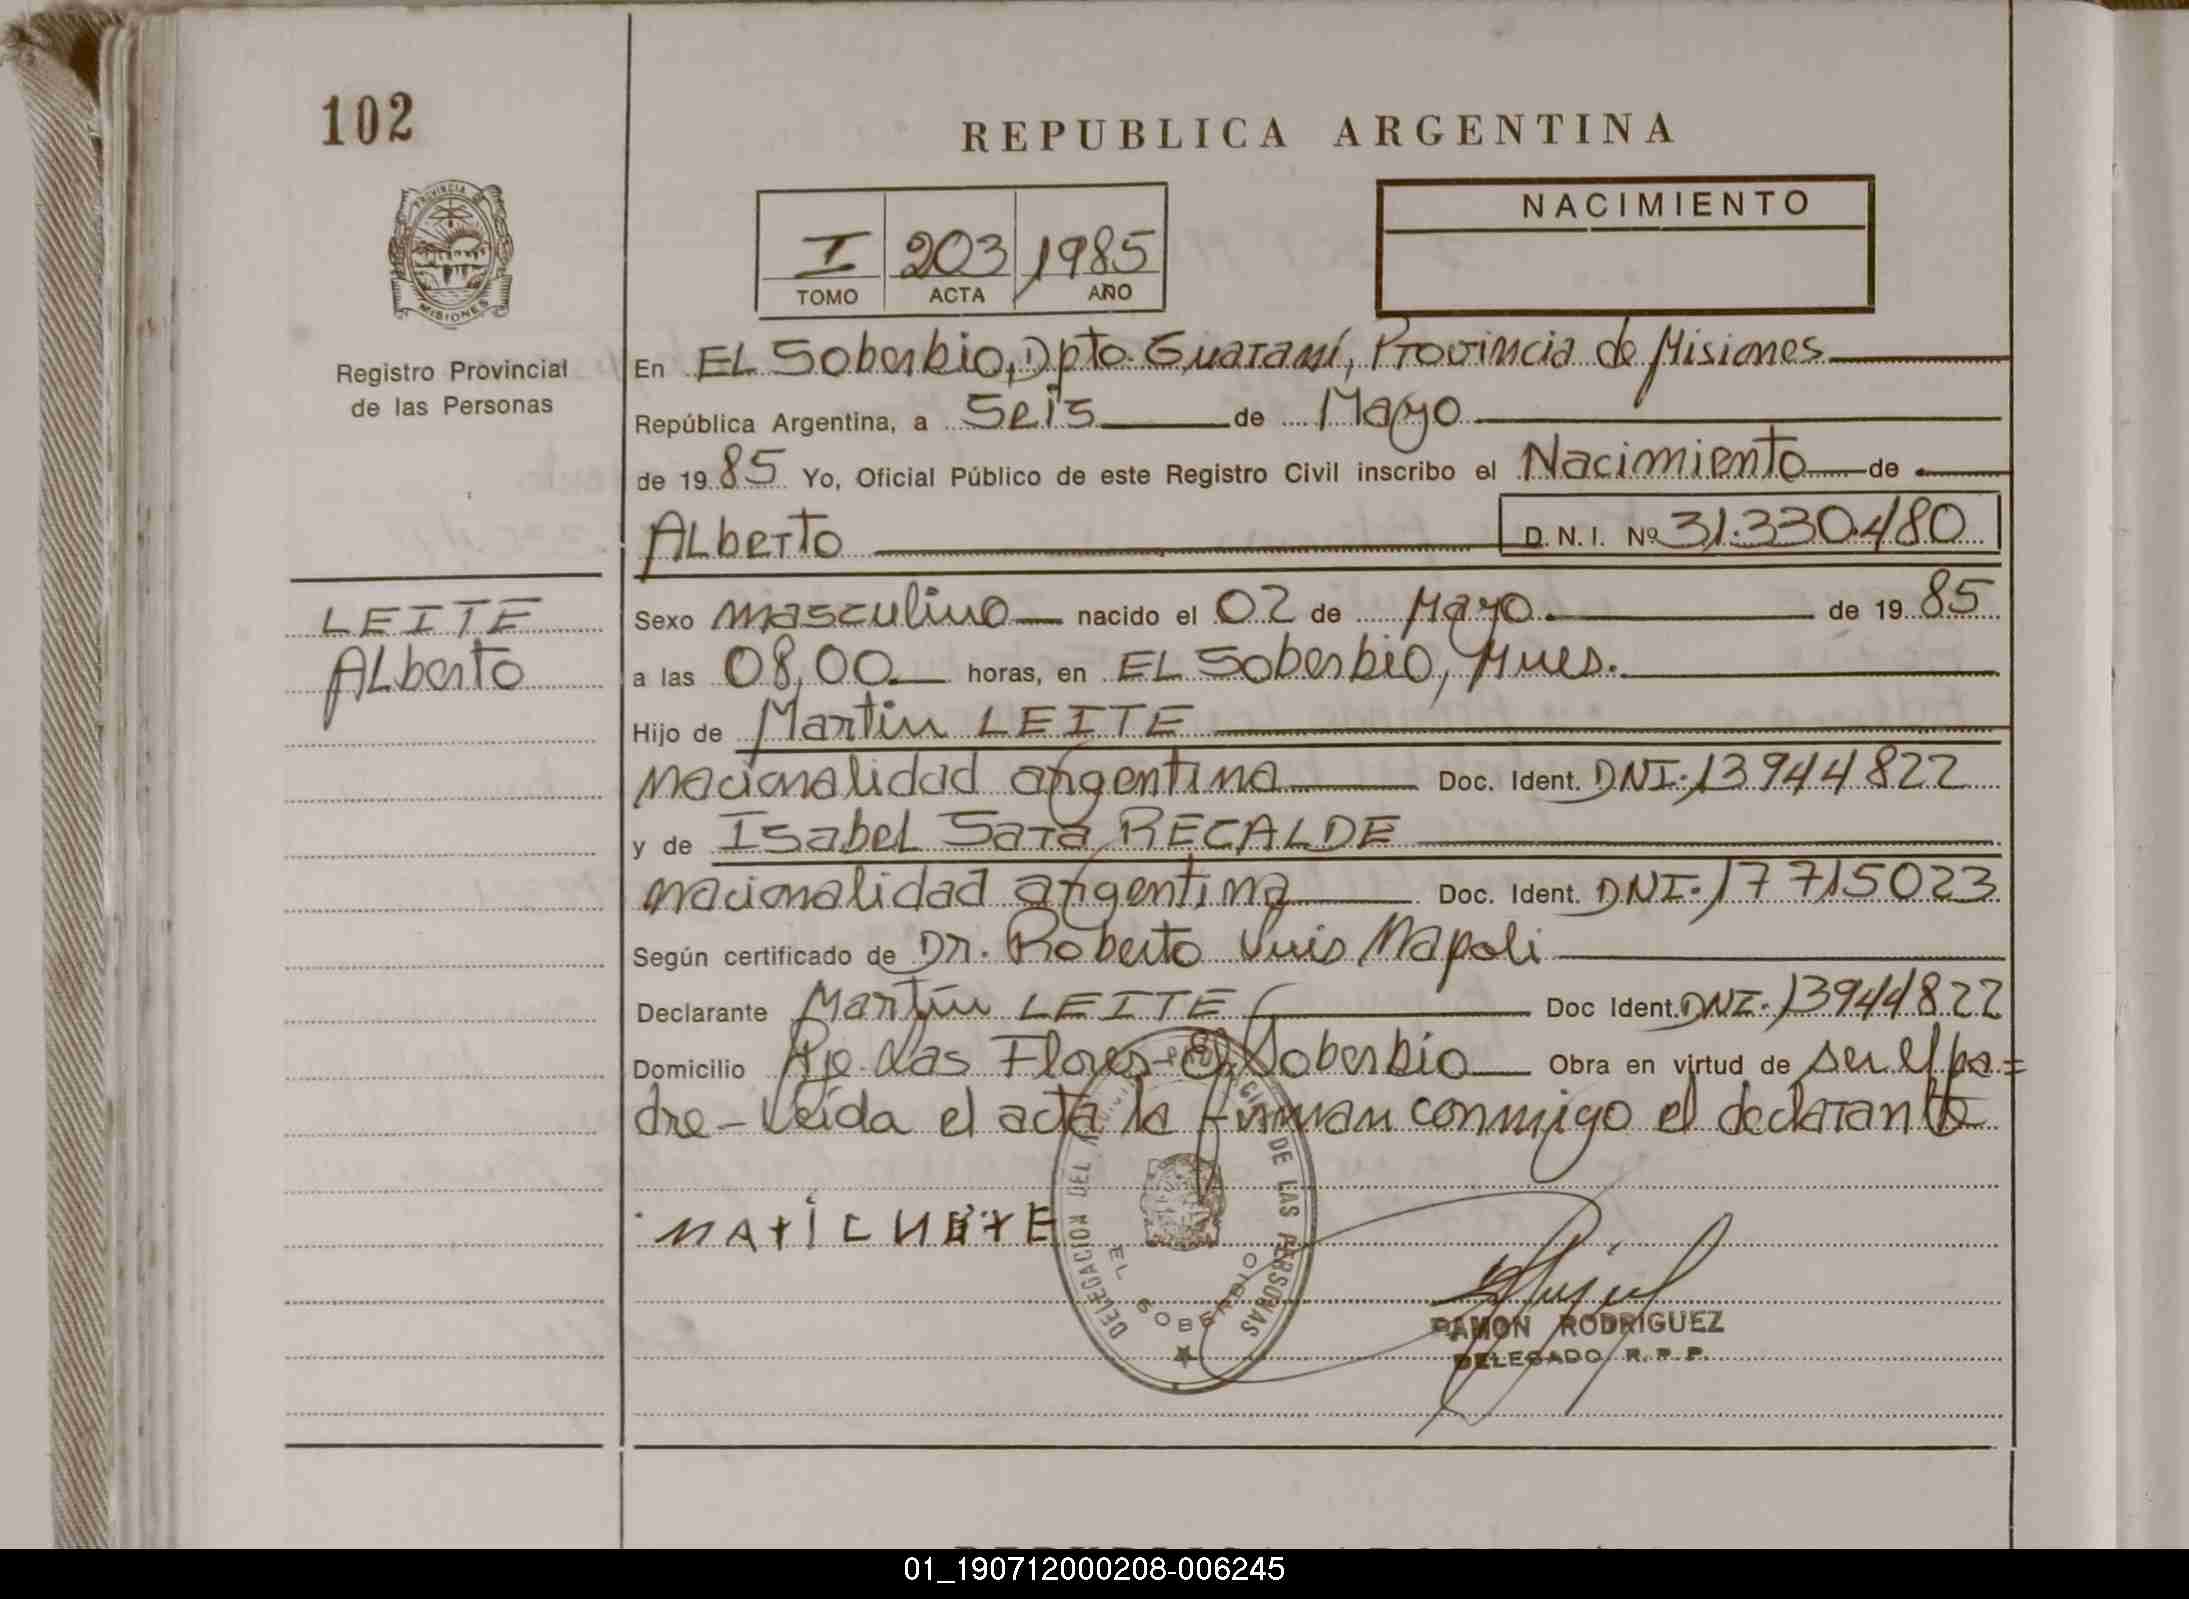 102
REPUBLICA ARGENTINA
PROVINCIA DE
MISIONES
Registro Provincial
de las Personas
I 203 1985
TOMO ACTA AÑO
NACIMIENTO
En EL Soberbio, Dpto. Guaraní, Provincia de Misiones
República Argentina, a Seis de Mayo
de 19 85 Yo, Oficial Público de este Registro Civil inscribo el Nacimiento de
Alberto D. N. I. Nº 31.330.480
LEITE
Alberto
Sexo masculino nacido el 02 de Mayo de 19 85
a las 08,00 horas, en EL Soberbio, Mnes.
Hijo de Martin LEITE
nacionalidad argentina Doc. Ident. DNI. 13944822
y de Isabel Sara RECALDE
nacionalidad argentina Doc. Ident. DNI. 17715023
Según certificado de Dr. Roberto Luis Napoli
Declarante Martin LEITE Doc Ident. DNI. 13944822
Domicilio Pje. Las Flores - El Soberbio Obra en virtud de ser el pa=
dre - Leída el acta la firman conmigo el declarante
DELEGACION DEL DE LAS PERSONAS
EL SOBERBIO
RAMON RODRIGUEZ
DELEGADO R. P. P.
01_190712000208-006245